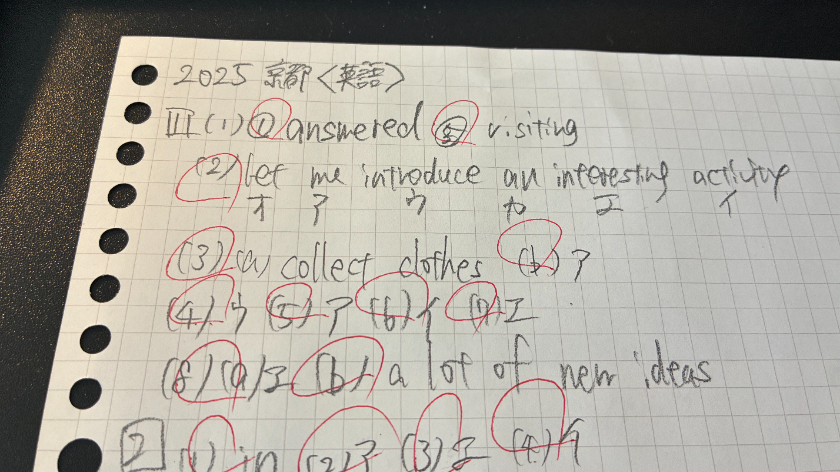 2025 京都〈英語〉
III (1) ① answered ⑤ visiting
(2) Let me introduce an interesting activity
オ ア ウ カ エ イ
(3) (a) collect clothes (b) ア
(4) ウ (5) ア (6) イ (7) エ
(8) (a) エ (b) a lot of new ideas
2 (1) in (2) ア (3) エ (4)